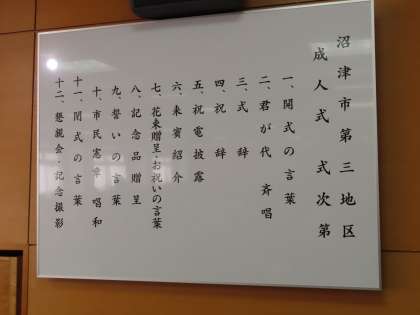 沼津市第三地区
成人式　式次第
一、開式の言葉
二、君が代　斉唱
三、式　辞
四、祝　辞
五、祝電披露
六、来賓紹介
七、花束贈呈・お祝いの言葉
八、記念品贈呈
九、誓いの言葉
十、市民憲章　唱和
十一、閉式の言葉
十二、懇親会・記念撮影